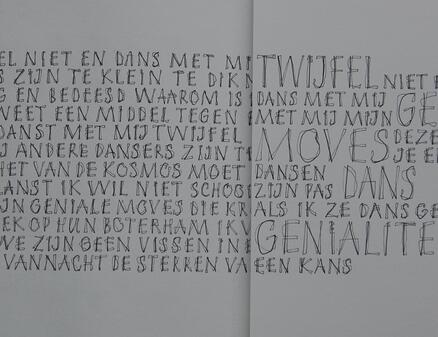 EL NIET EN DANS MET MI
S ZIJN TE KLEIN TE DIK N
G EN BEDEESD WAAROM IS
WEET EEN MIDDEL TEGEN
DANST MET MIJ TWIJFEL
IJ ANDERE DANSERS ZIJN T
HET VAN DE KOSMOS MOET
LANST IK WIL NIET
IJN GENIALE MOVES DIE KR
EK OP HUN BOTERHAM IK V
WE ZIJN GEEN VISSEN IN
VANNACHT DE STERREN VA
TWIJFEL NIET
DANS MET MIJ GE
MET MIJ MIJN
MOVES DEZE
JE E
DANSEN
ZIJN PAS DANS
ALS IK ZE DANS GE
GENIALITE
EEN KANS